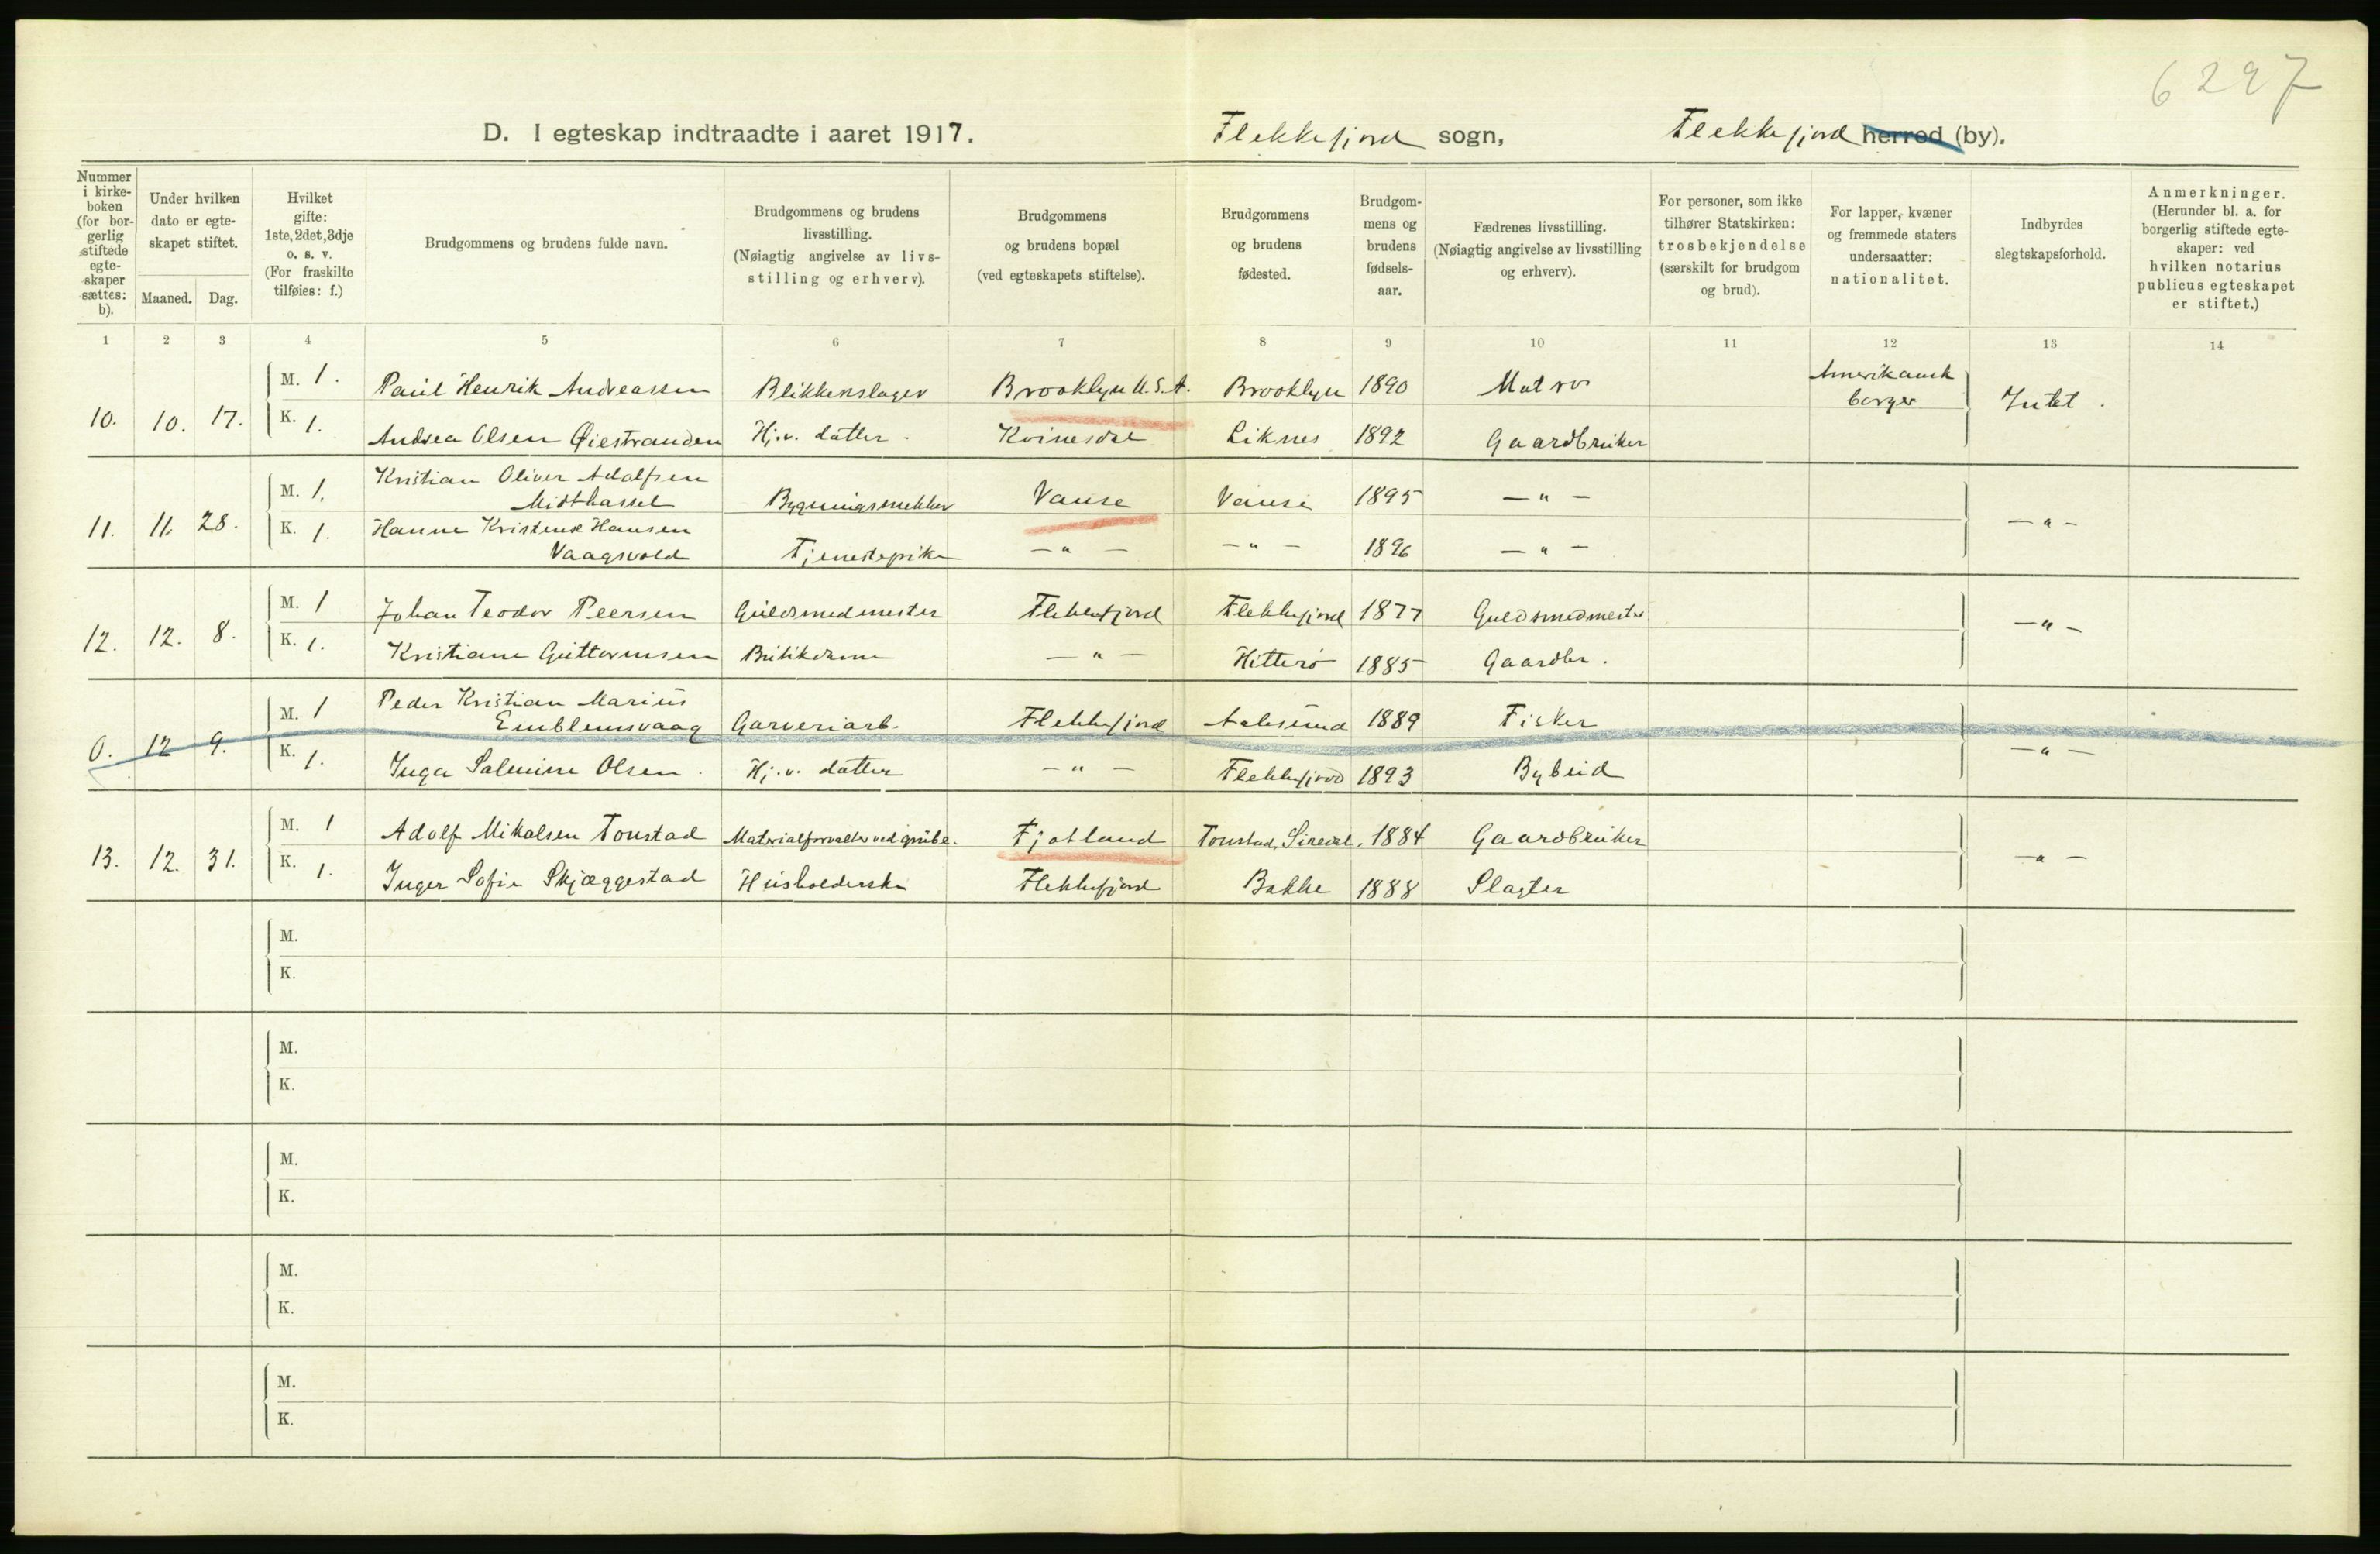 6297
D. I egteskap indtraadte i aaret 1917. Flekkefjord sogn, Flekkefjord herred (by).
Nummer i kirke-boken (for bor-gerlig stiftede egte-skaper sættes: b).
Under hvilken dato er egte-skapet stiftet.
Maaned. Dag.
Hvilket gifte: 1ste, 2det, 3dje o. s. v. (For fraskilte tilføies: f.)
Brudgommens og brudens fulde navn.
Brudgommens og brudens livsstilling. (Nøiagtig angivelse av livs-stilling og erhverv).
Brudgommens og brudens bopæl (ved egteskapets stiftelse).
Brudgommens og brudens fødested.
Brudgom-mens og brudens fødsels-aar.
Fædrenes livsstilling. (Nøiagtig angivelse av livsstilling og erhverv).
For personer, som ikke tilhører Statskirken: trosbekjendelse (særskilt for brudgom og brud).
For lapper, kvæner og fremmede staters undersaatter: nationalitet.
Indbyrdes slegtskapsforhold.
Anmerkninger. (Herunder bl. a. for borgerlig stiftede egte-skaper: ved hvilken notarius publicus egteskapet er stiftet.)
1 2 3 4 5 6 7 8 9 10 11 12 13 14
10. 10. 17. M. 1. Paul Henrik Andreassen Blikkenslager Brooklyn U.S.A. Brooklyn 1890 Matros Amerikansk borger Intet.
K. 1. Andrea Olsen Øiestranden Hj.v. datter. Kvinesdal Liknes 1892 Gaardbruker
11. 11. 28. M. 1. Kristian Oliver Adolfsen
Midthassel Bygningssnekker Vanse Vanse 1895 — " — — " —
K. 1. Hanne Kristense Hansen
Vaagsvold Tjenestepike — " — — " — 1896 — " —
12. 12. 8. M. 1 Johan Teodor Peersen Guldsmedmester Flekkefjord Flekkefjord 1877 Guldsmedmester — " —
K. 1. Kristiane Guttormsen Butikdame — " — Hitterö 1885 Gaardbr.
0. 12 9. M. 1 Peder Kristian Marius
Emblemsvaag Garveriarb. Flekkefjord Aalesund 1889 Fisker — " —
K. 1. Inga Salmine Olsen. Hj.v. datter — " — Flekkefjord 1893 Bybud
13. 12. 31. M. 1 Adolf Mikalsen Tonstad Materialforvalter ved grube. Fjotland Tonstad, Siredal. 1884 Gaardbruker — " —
K. 1. Inger Sofie Skjæggestad Husholderske Flekkefjord Bakke 1888 Slagter
M.
K.
M.
K.
M.
K.
M.
K.
M.
K.